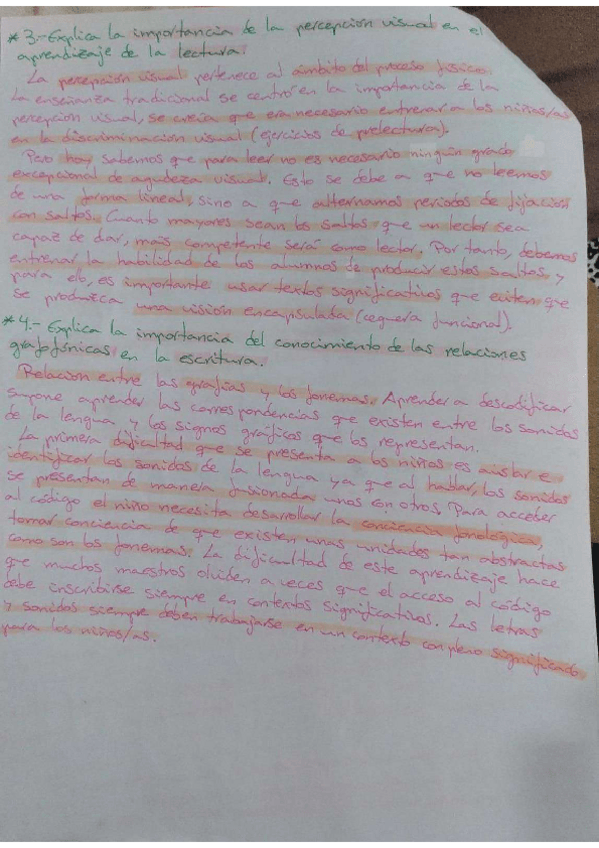 * 3.- Explica la importancia de la percepción visual en el
aprendizaje de la lectura.
La percepción visual pertenece al ámbito del proceso físico.
La enseñanza tradicional se centró en la importancia de la
percepción visual, se creía que era necesario entrenar a los niños/as
en la discriminación visual (ejercicios de prelectura).
Pero hoy sabemos que para leer no es necesario ningún grado
excepcional de agudeza visual. Esto se debe a que no leemos
de una forma lineal, sino a que alternamos periodos de fijación
con saltos. Cuanto mayores sean los saltos que un lector sea
capaz de dar, más competente será como lector. Por tanto, debemos
entrenar la habilidad de los alumnos de producir estos saltos, y
para ello, es importante usar textos significativos que eviten que
se produzca una visión encapsulada (ceguera funcional).
* 4.- Explica la importancia del conocimiento de las relaciones
grafofónicas en la escritura.
Relación entre las grafías y los fonemas. Aprender a descodificar
supone aprender las correspondencias que existen entre los sonidos
de la lengua y los signos gráficos que los representan.
La primera dificultad que se presenta a los niños es aislar e
identificar los sonidos de la lengua ya que al hablar, los sonidos
se presentan de manera fusionada unos con otros. Para acceder
al código el niño necesita desarrollar la conciencia fonológica,
tomar conciencia de que existen unas unidades tan abstractas
como son los fonemas. La dificultad de este aprendizaje hace
que muchos maestros olviden a veces que el acceso al código
debe inscribirse siempre en contextos significativos. Las letras
y sonidos siempre deben trabajarse en un contexto con pleno significado
para los niños/as.